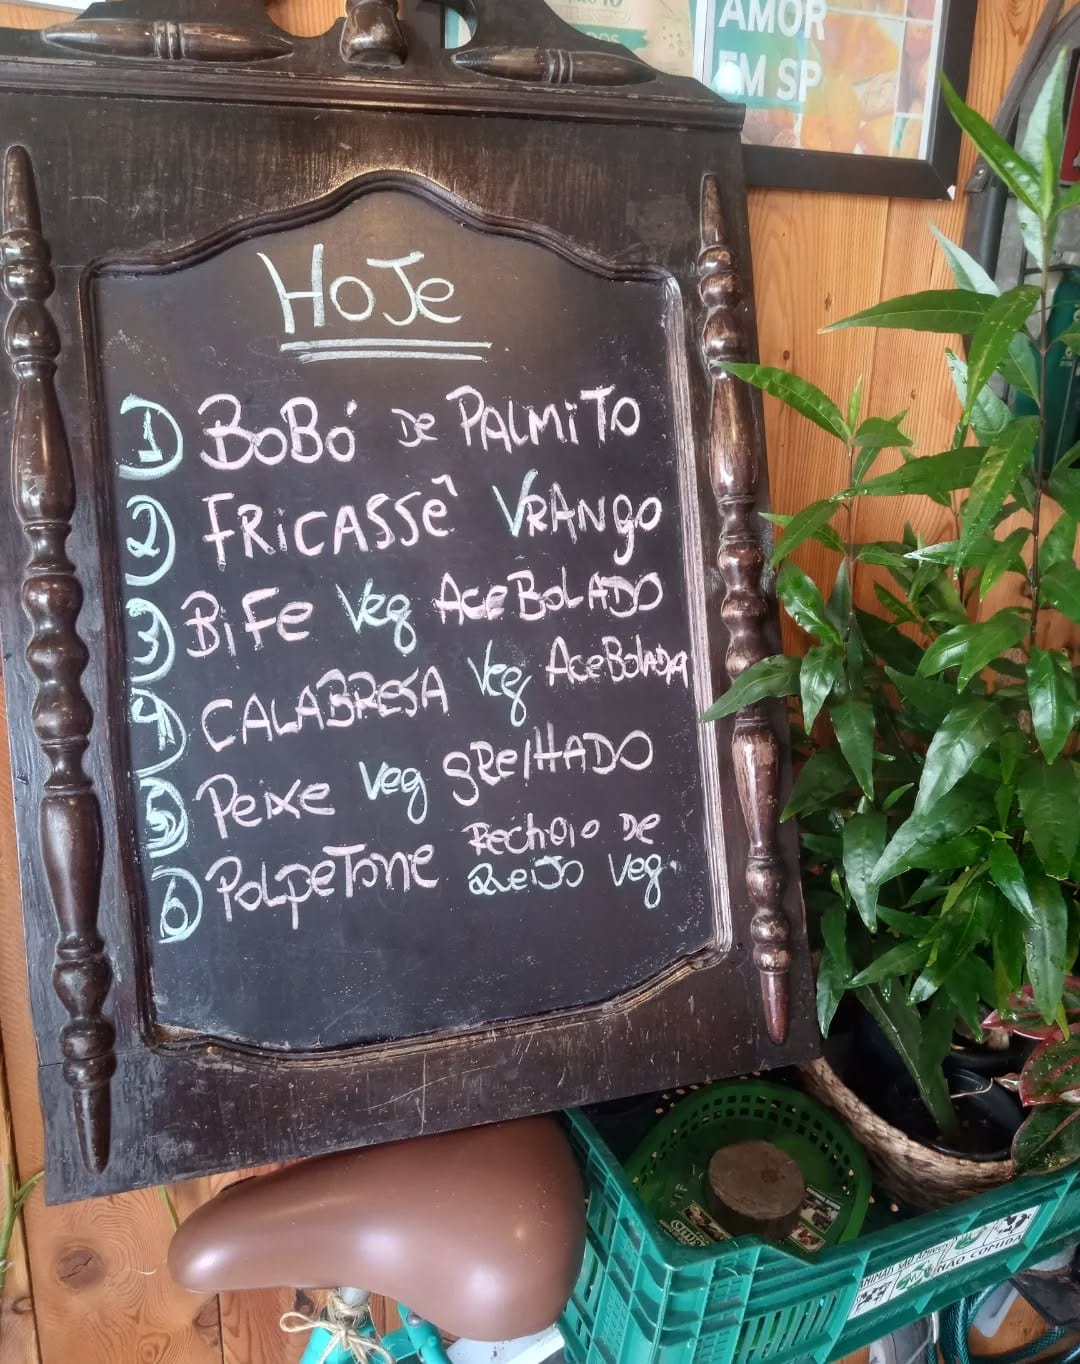 AMOR
EM SP
HOJe
1 BOBÓ De PALMiTO
2 FRiCASSÊ VRANgO
3 BiFe Veg AceBOLADO
4 CALABRESA Veg AceBOlADA
5 Peixe Veg gRelHADO
6 POLpeTone Recheio De
QueiJO Veg.
ANIMAIS SÃO AMIGOS
NÃO COMIDA